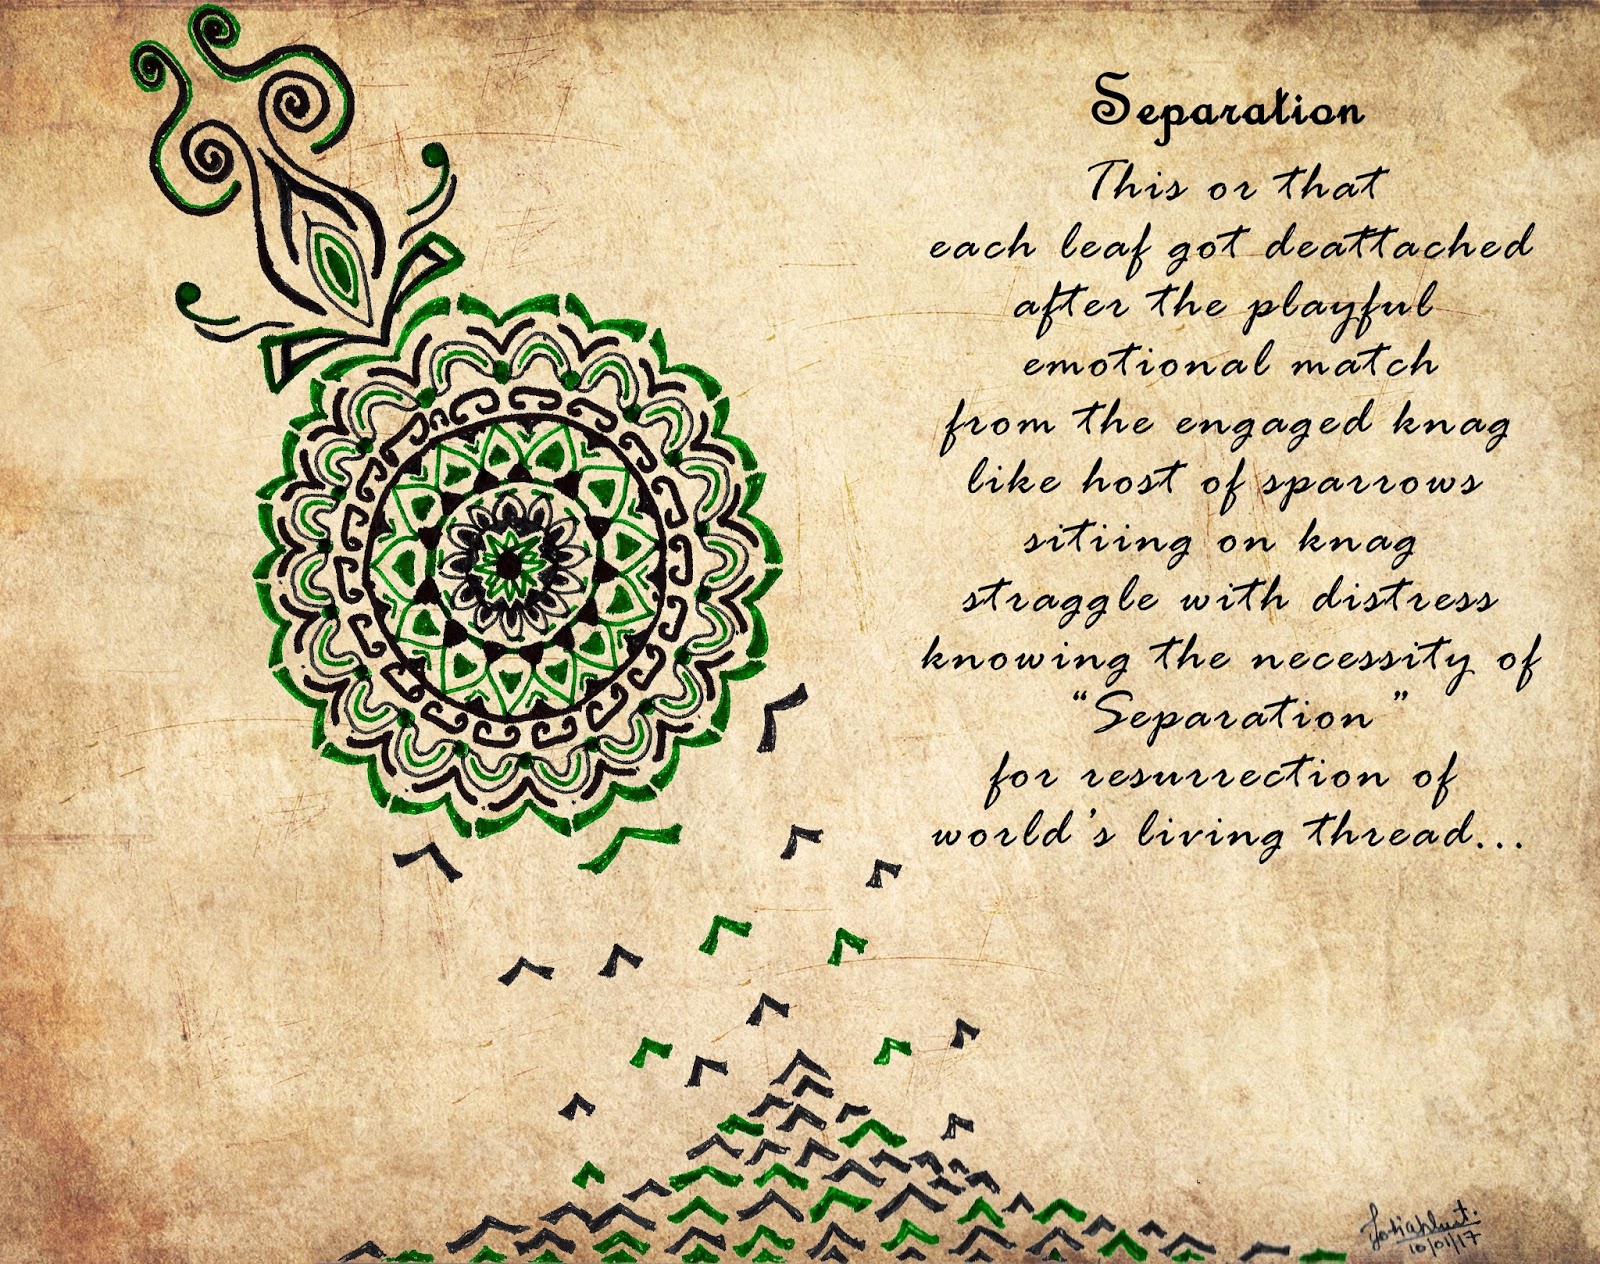 Separation
This or that
each leaf got deattached
after the playful
emotional match
from the engaged knag
like host of sparrows
sitiing on knag
straggle with distress
knowing the necessity of
“Separation”
for resurrection of
world’s living thread...
10/01/17